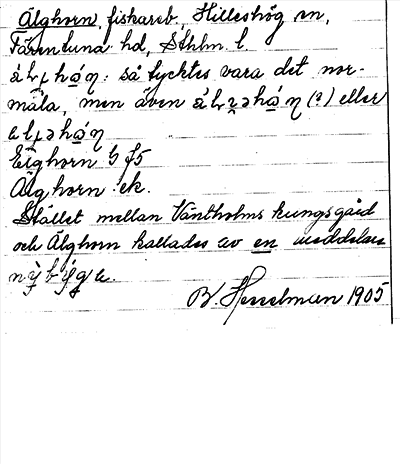 Älghorn, fiskareb. Hilleshög sn,
Färentuna hd, Sthlm. l.
så tycktes vara det nor-
mala, men även (?) eller
Elghorn G f5
Älghorn ek.
Stället mellan Väntholms kungsgård
och Älghorn kallades av en meddelare
B. Hesselman 1905